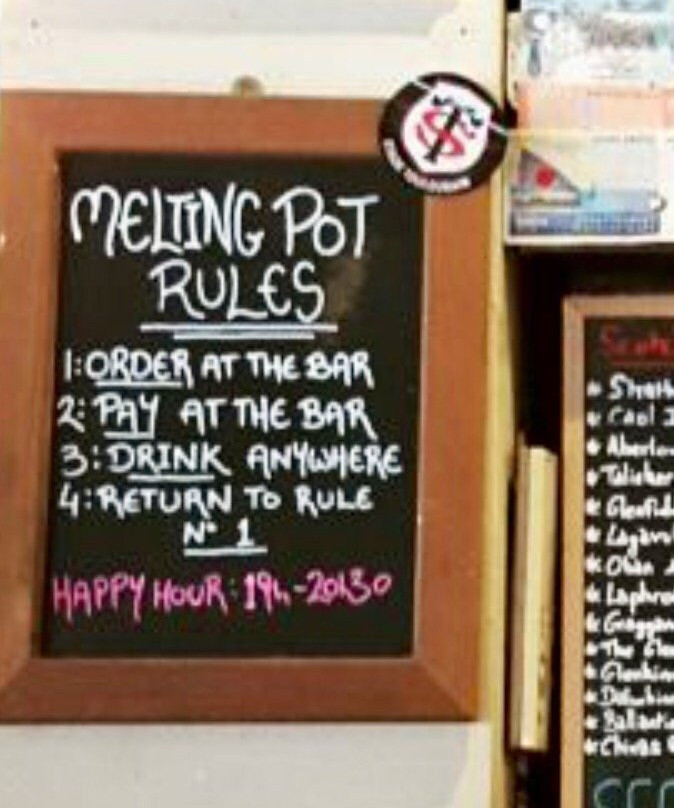 MELTING POT
RULES
1: ORDER AT THE BAR
2: PAY AT THE BAR
3: DRINK ANYWHERE
4: RETURN TO RULE
N° 1
HAPPY HOUR: 19h-20h30
Scotc
* Strath
* Caol I
* Aberlou
* Talisker
* Glenfid
* Lagavul
* Oban
* Laphro
* Craggan
* The Gle
* Glenkin
* Dalwhin
* Ballanti
* Chivas